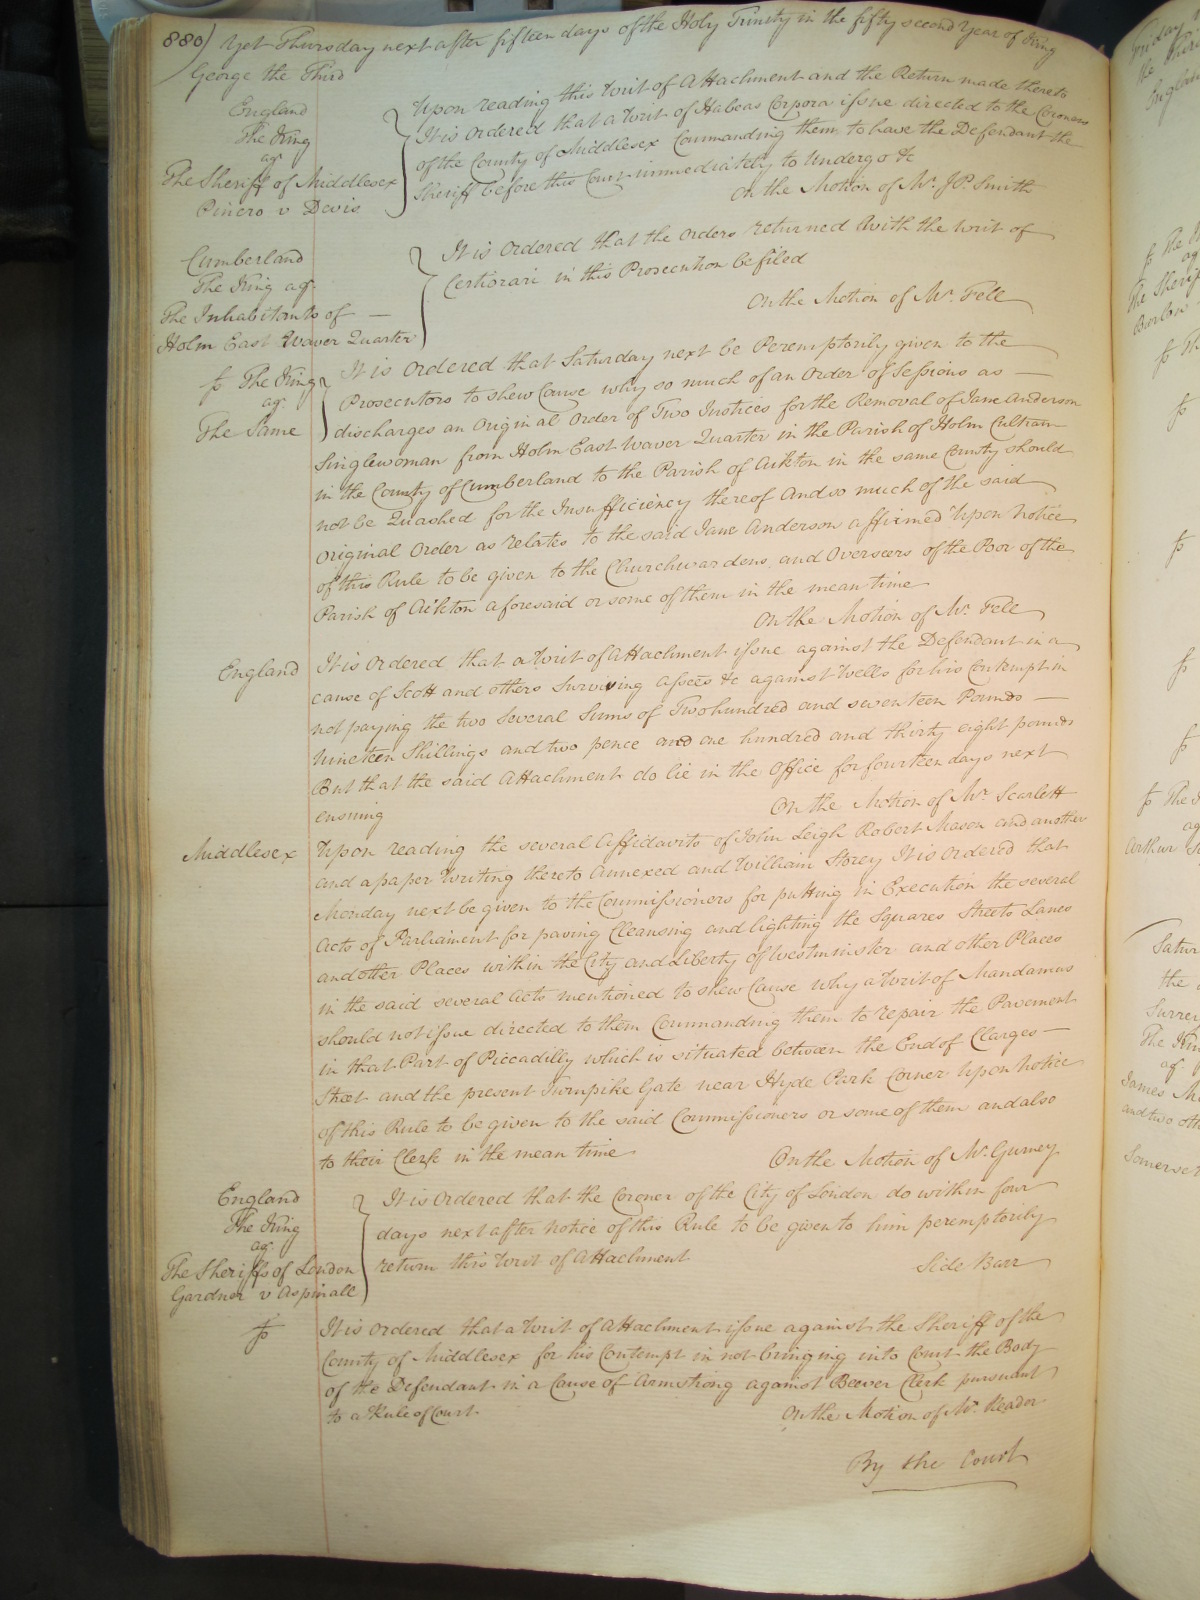 880) Yet Thursday next after fifteen days of the Holy Trinity in the fifty second Year of King
George the Third
England
The King
agt
The Sheriff of Middlesex
Pinero v Devis
Upon reading this Writ of Attachment and the Return made thereto
It is Ordered that a Writ of Habeas Corpora issue directed to the Coroners
of the County of Middlesex Commanding them to have the Defendant the
Sheriff before this Court immediately to Undergo &c
On the Motion of Mr. J.P. Smith
Cumberland
The King agt
The Inhabitants of —
Holm East Waver Quarter
It is Ordered that the Orders returned with the Writ of
Certiorari in this Prosecution be filed
On the Motion of Mr. Fell
fo The King
agt
The Same
It is Ordered that Saturday next be Peremptorily given to the
Prosecutors to shew Cause why so much of an Order of Sessions as —
discharges an Original Order of Two Justices for the Removal of Jane Anderson
Singlewoman from Holm East Waver Quarter in the Parish of Holm Cultram
in the County of Cumberland to the Parish of Aikton in the same County should
not be Quashed for the Insufficiency thereof And so much of the said
Original Order as relates to the said Jane Anderson affirmed Upon Notice
of this Rule to be given to the Churchwardens and Overseers of the Poor of the
Parish of Aikton aforesaid or some of them in the mean time
On the Motion of Mr. Fell
England
It is Ordered that a Writ of Attachment issue against the Defendant in a
cause of Scott and others Surviving assees &c against Wells for his Contempt in
not paying the two Several Sums of Two hundred and seventeen Pounds —
Nineteen Shillings and two pence and one hundred and thirty eight pounds
But that the said Attachment do lie in the Office for fourteen days next
ensuing
On the Motion of Mr. Scarlett
Middlesex
Upon reading the several Affidavits of John Leigh Robert Mason and another
and a paper Writing thereto Annexed and William Storey It is Ordered that
Monday next be given to the Commissioners for putting in Execution the several
Acts of Parliament for paving Cleansing and lighting the Squares Streets Lanes
and other Places within the City and Liberty of Westminster and other Places
in the said several Acts mentioned to shew Cause why a Writ of Mandamus
should not issue directed to them Commanding them to repair the Pavement
in that Part of Piccadilly which is situated between the End of Clarges —
Street and the present Turnpike Gate near Hyde Park Corner Upon Notice
of this Rule to be given to the said Commissioners or some of them and also
to their Clerk in the mean time
On the Motion of Mr. Gurney
England
The King
agt
The Sheriffs of London
Gardner v Aspinall
It is Ordered that the Coroner of the City of London do within four
days next after Notice of this Rule to be given to him peremptorily
return this Writ of Attachment
Side Barr
fo
It is Ordered that a Writ of Attachment issue against the Sheriff of the
County of Middlesex for his Contempt in not bringing into Court the Body
of the Defendant in a Cause of Armstrong against Beever Clerk pursuant
to a Rule of Court
On the Motion of Mr. Reader
By the Court